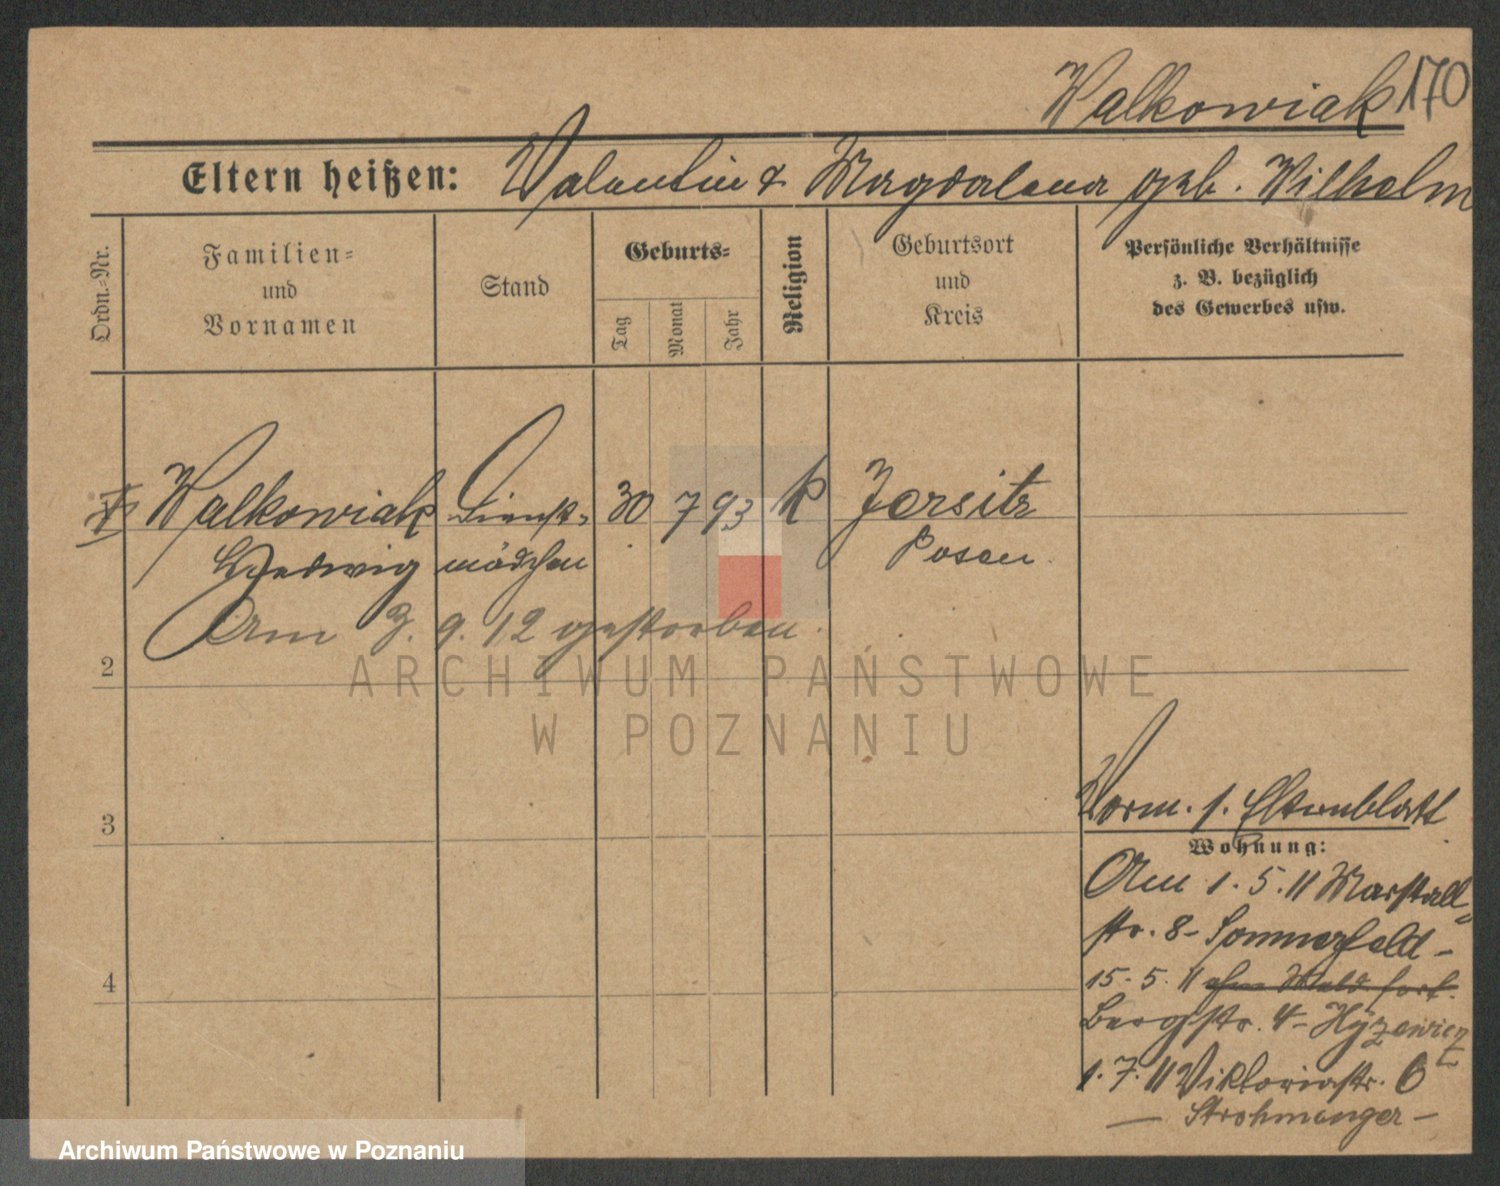 Walkowiak 170
Eltern heißen: Valentin & Magdalena geb. Wilhelm
Ordn.-Nr.
Familien-
und
Vornamen
Stand
Geburts-
Tag
Monat
Jahr
Religion
Geburtsort
und
Kreis
Persönliche Verhältnisse
z. B. bezüglich
des Gewerbes usw.
Walkowiak Dienst- 30 7 93 k Jersitz
Hedwig mädchen Posen.
Am 3. 9. 12 gestorben.
2
ARCHIWUM PAŃSTWOWE
W POZNANIU
3
Vorm. s. Elternblatt
Wohnung:
Am 1. 5. 11 Marstall-
str. 8 - Sommerfeld -
4
15. 5. 11 ohne Meld. fort.
Bergstr. 4 - Hyzewicz
1. 7. 11 Viktoriastr. 6
- Strohmenger -
Archiwum Państwowe w Poznaniu